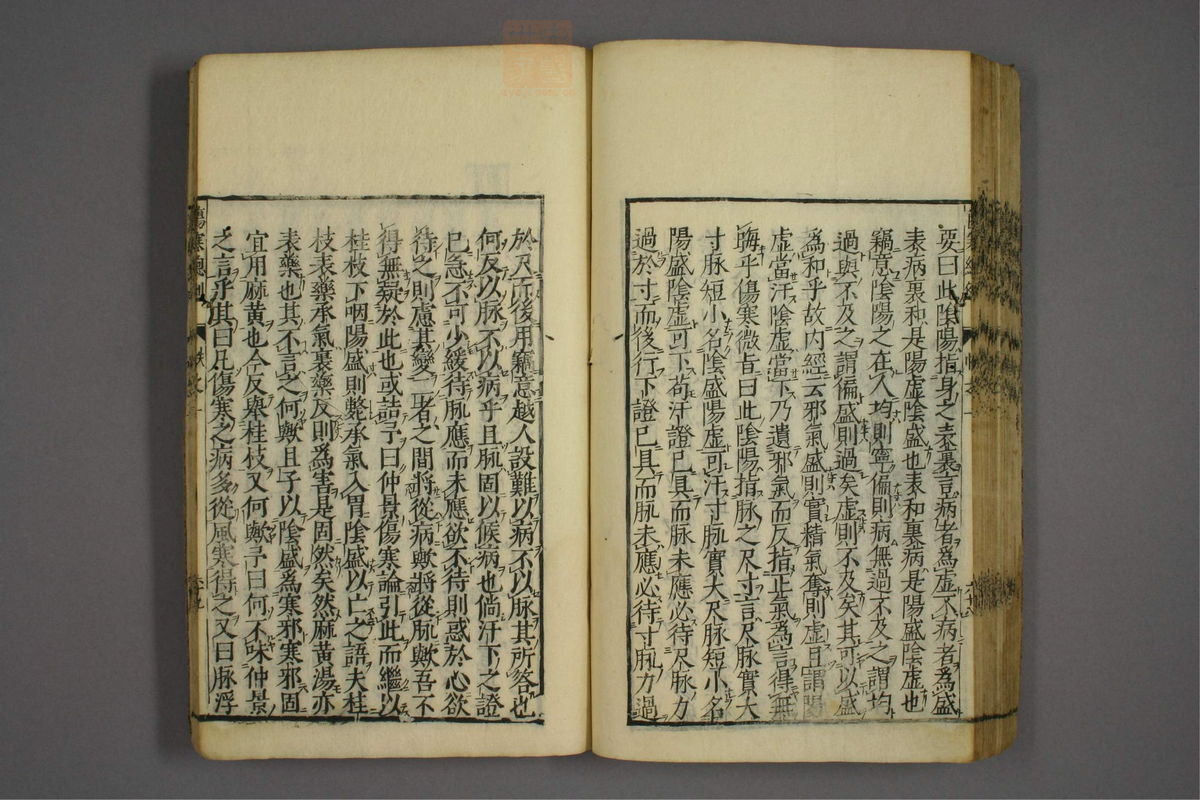 要曰此陰陽指身之表裏言病者為虛不病者為盛
表病裏和是陽虛陰盛也表和裏病是陽盛陰虛也
竊意陰陽之在人均則寧偏則病無過不及之謂均
過與不及之謂偏盛則過矣虛則不及矣其可以盛
為和乎故内經云邪氣盛則實精氣奪則虛且謂陽
虛當汗陰虛當下乃遺邪氣而反指正氣為言得無
晦乎傷寒微旨曰此陰陽指脉之尺寸言尺脉實大
寸脉短小名陰盛陽虛可汗寸脉實大尺脉短小名
陽盛陰虛可下苟汗證已具而脉未應必待尺脉力
過於寸而後行下證已具而脉未應必待寸脉力過
於尺而後用竊意越人設難以病不以脉其所答也
何反以脉不以病乎且脉固以候病也倘汗下之證
已急不可少緩待脉應而未應欲不待則惑於心欲
待之則慮其變二者之間將從病歟將從脉歟吾不
得無疑於此也或詰予曰仲景傷寒論引此而繼以
桂枝下咽陽盛則斃承氣入胃陰盛以亡之語夫桂
枝表藥承氣裏藥反則為害是固然矣然麻黃湯亦
表藥也其不言之何歟且子以陰盛為寒邪寒邪固
宜用麻黃也今反舉桂枝又何歟予曰何不味仲景
之言乎其曰凡傷寒之病多從風寒得之又曰脉浮